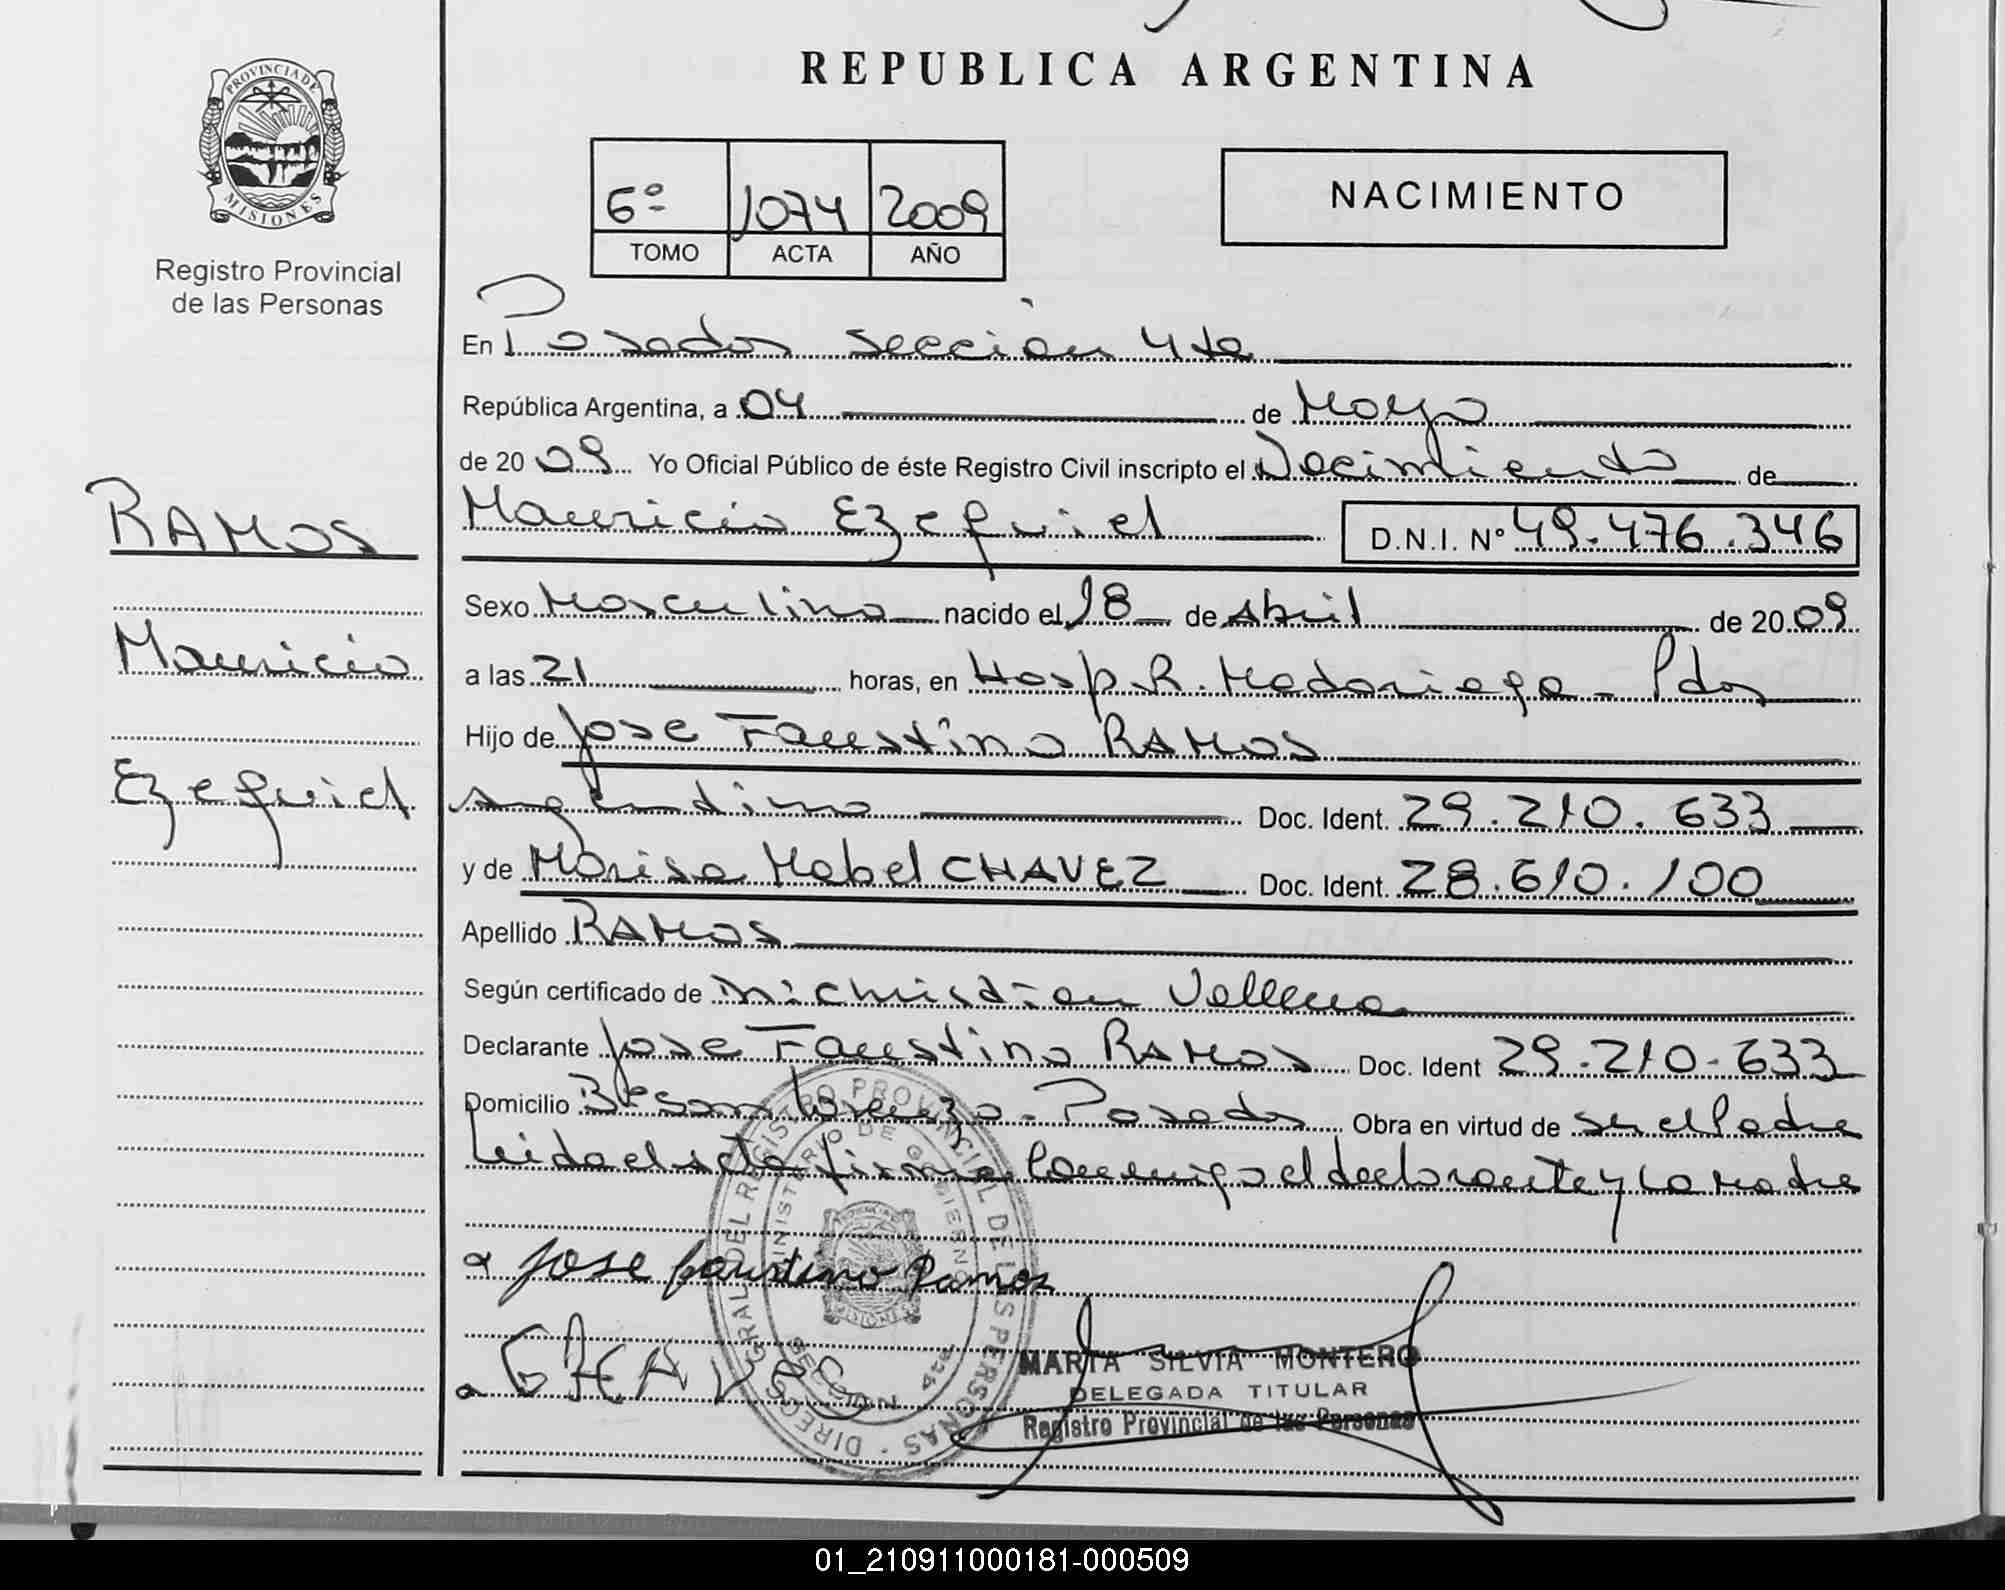 REPUBLICA ARGENTINA
PROVINCIA DE MISIONES
Registro Provincial
de las Personas
6º 1074 2009
TOMO ACTA AÑO
NACIMIENTO
En Posadas Sección 4ta
República Argentina, a 04 de Mayo
de 2009 Yo Oficial Público de éste Registro Civil inscripto el Nacimiento de
RAMOS
Mauricio Ezequiel D.N.I. Nº 49.476.346
Sexo Masculino nacido el 18 de Abril de 2009
Mauricio
a las 21 horas, en Hosp. R. Madariaga - Pdas
Hijo de Jose Faustino RAMOS
Ezequiel
argentino Doc. Ident. 29.210.633
y de Marisa Mabel CHAVEZ Doc. Ident. 28.610.100
Apellido RAMOS
Según certificado de
Declarante Jose Faustino RAMOS Doc. Ident 29.210-633
Domicilio Bº San Lorenzo - Posadas Obra en virtud de ser el Padre
Leida el acta firma conmigo el declarante y la madre
Jose faustino Ramos
CHAVEZ
DIREC. GRAL. DEL REGISTRO PROVINCIAL DE LAS PERSONAS
MINISTERIO DE GOBIERNO
SECCION 4ta
MARTA SILVIA MONTERO
DELEGADA TITULAR
Registro Provincial de las Personas
01_210911000181-000509